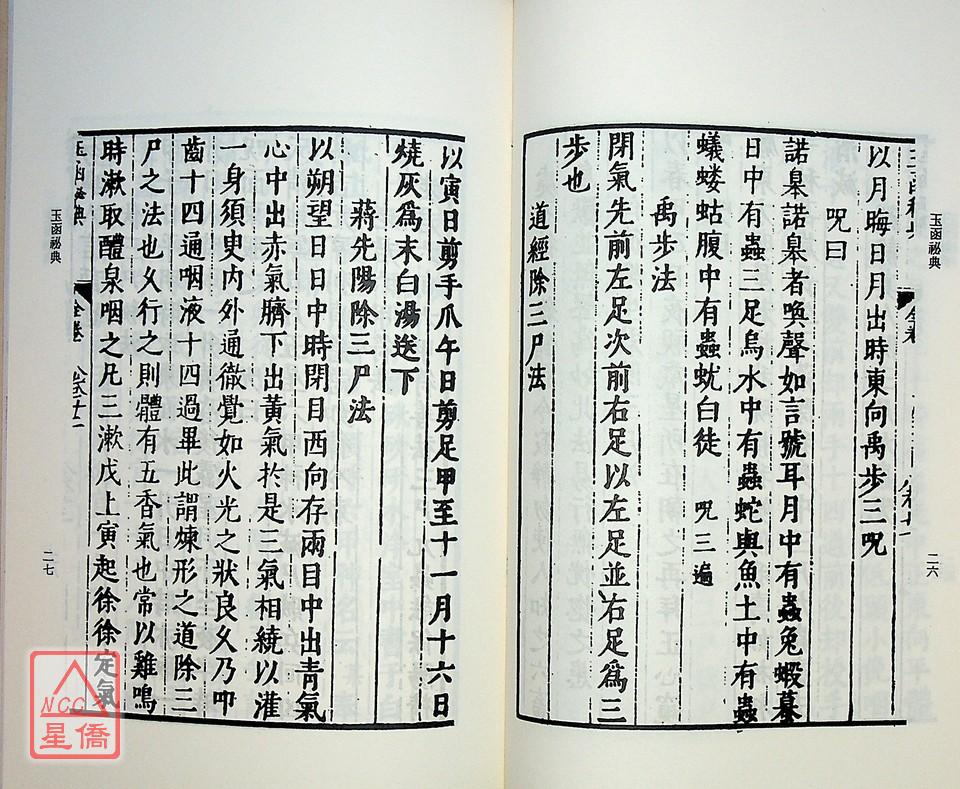 玉函祕典
二六
以月晦日月出時東向禹步三咒
咒曰
諾皋諾皋者喚聲如言號耳月中有蟲兔蝦蟇
日中有蟲三足烏水中有蟲蛇與魚土中有蟲
蟻蝼蛄腹中有蟲蚘白徒 咒三遍
禹步法
閉氣先前左足次前右足以左足並右足爲三
步也
道經除三尸法
以寅日剪手爪午日剪足甲至十一月十六日
燒灰爲末白湯送下
蔣先陽除三尸法
以朔望日日中時閉目西向存兩目中出青氣
心中出赤氣臍下出黃氣於是三氣相繞以灌
一身須臾内外通徹覺如火光之狀良久乃叩
齒十四通咽液十四過畢此謂煉形之道除三
尸之法也久行之則體有五香氣也常以雞鳴
時漱取醴泉咽之凡三漱戊上寅起徐徐定氣
玉函祕典
全卷
玉函祕典
二七
NCC
星僑